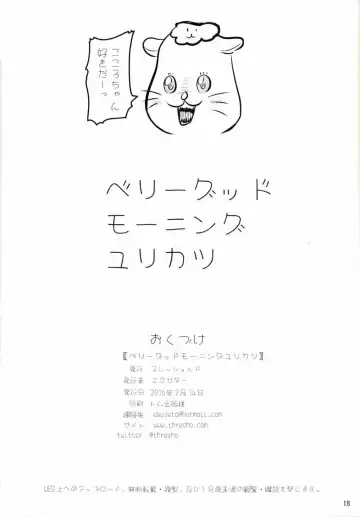 こころちゃん
好きだーっ
ベリーグッド
モーニング
ユリカツ
おくづけ
【ベリーグッドモーニングユリカツ】
発行 スレッショルド
発行者 エクゼター
発行日 2016年2月14日
印刷 トム出版様
連絡先 @hotmail.com
サイト www.thresho.com
twitter @thresho
WEB上へのアップロード、無断転載・複製、及び18歳未満の観覧・購読を禁じます。
18